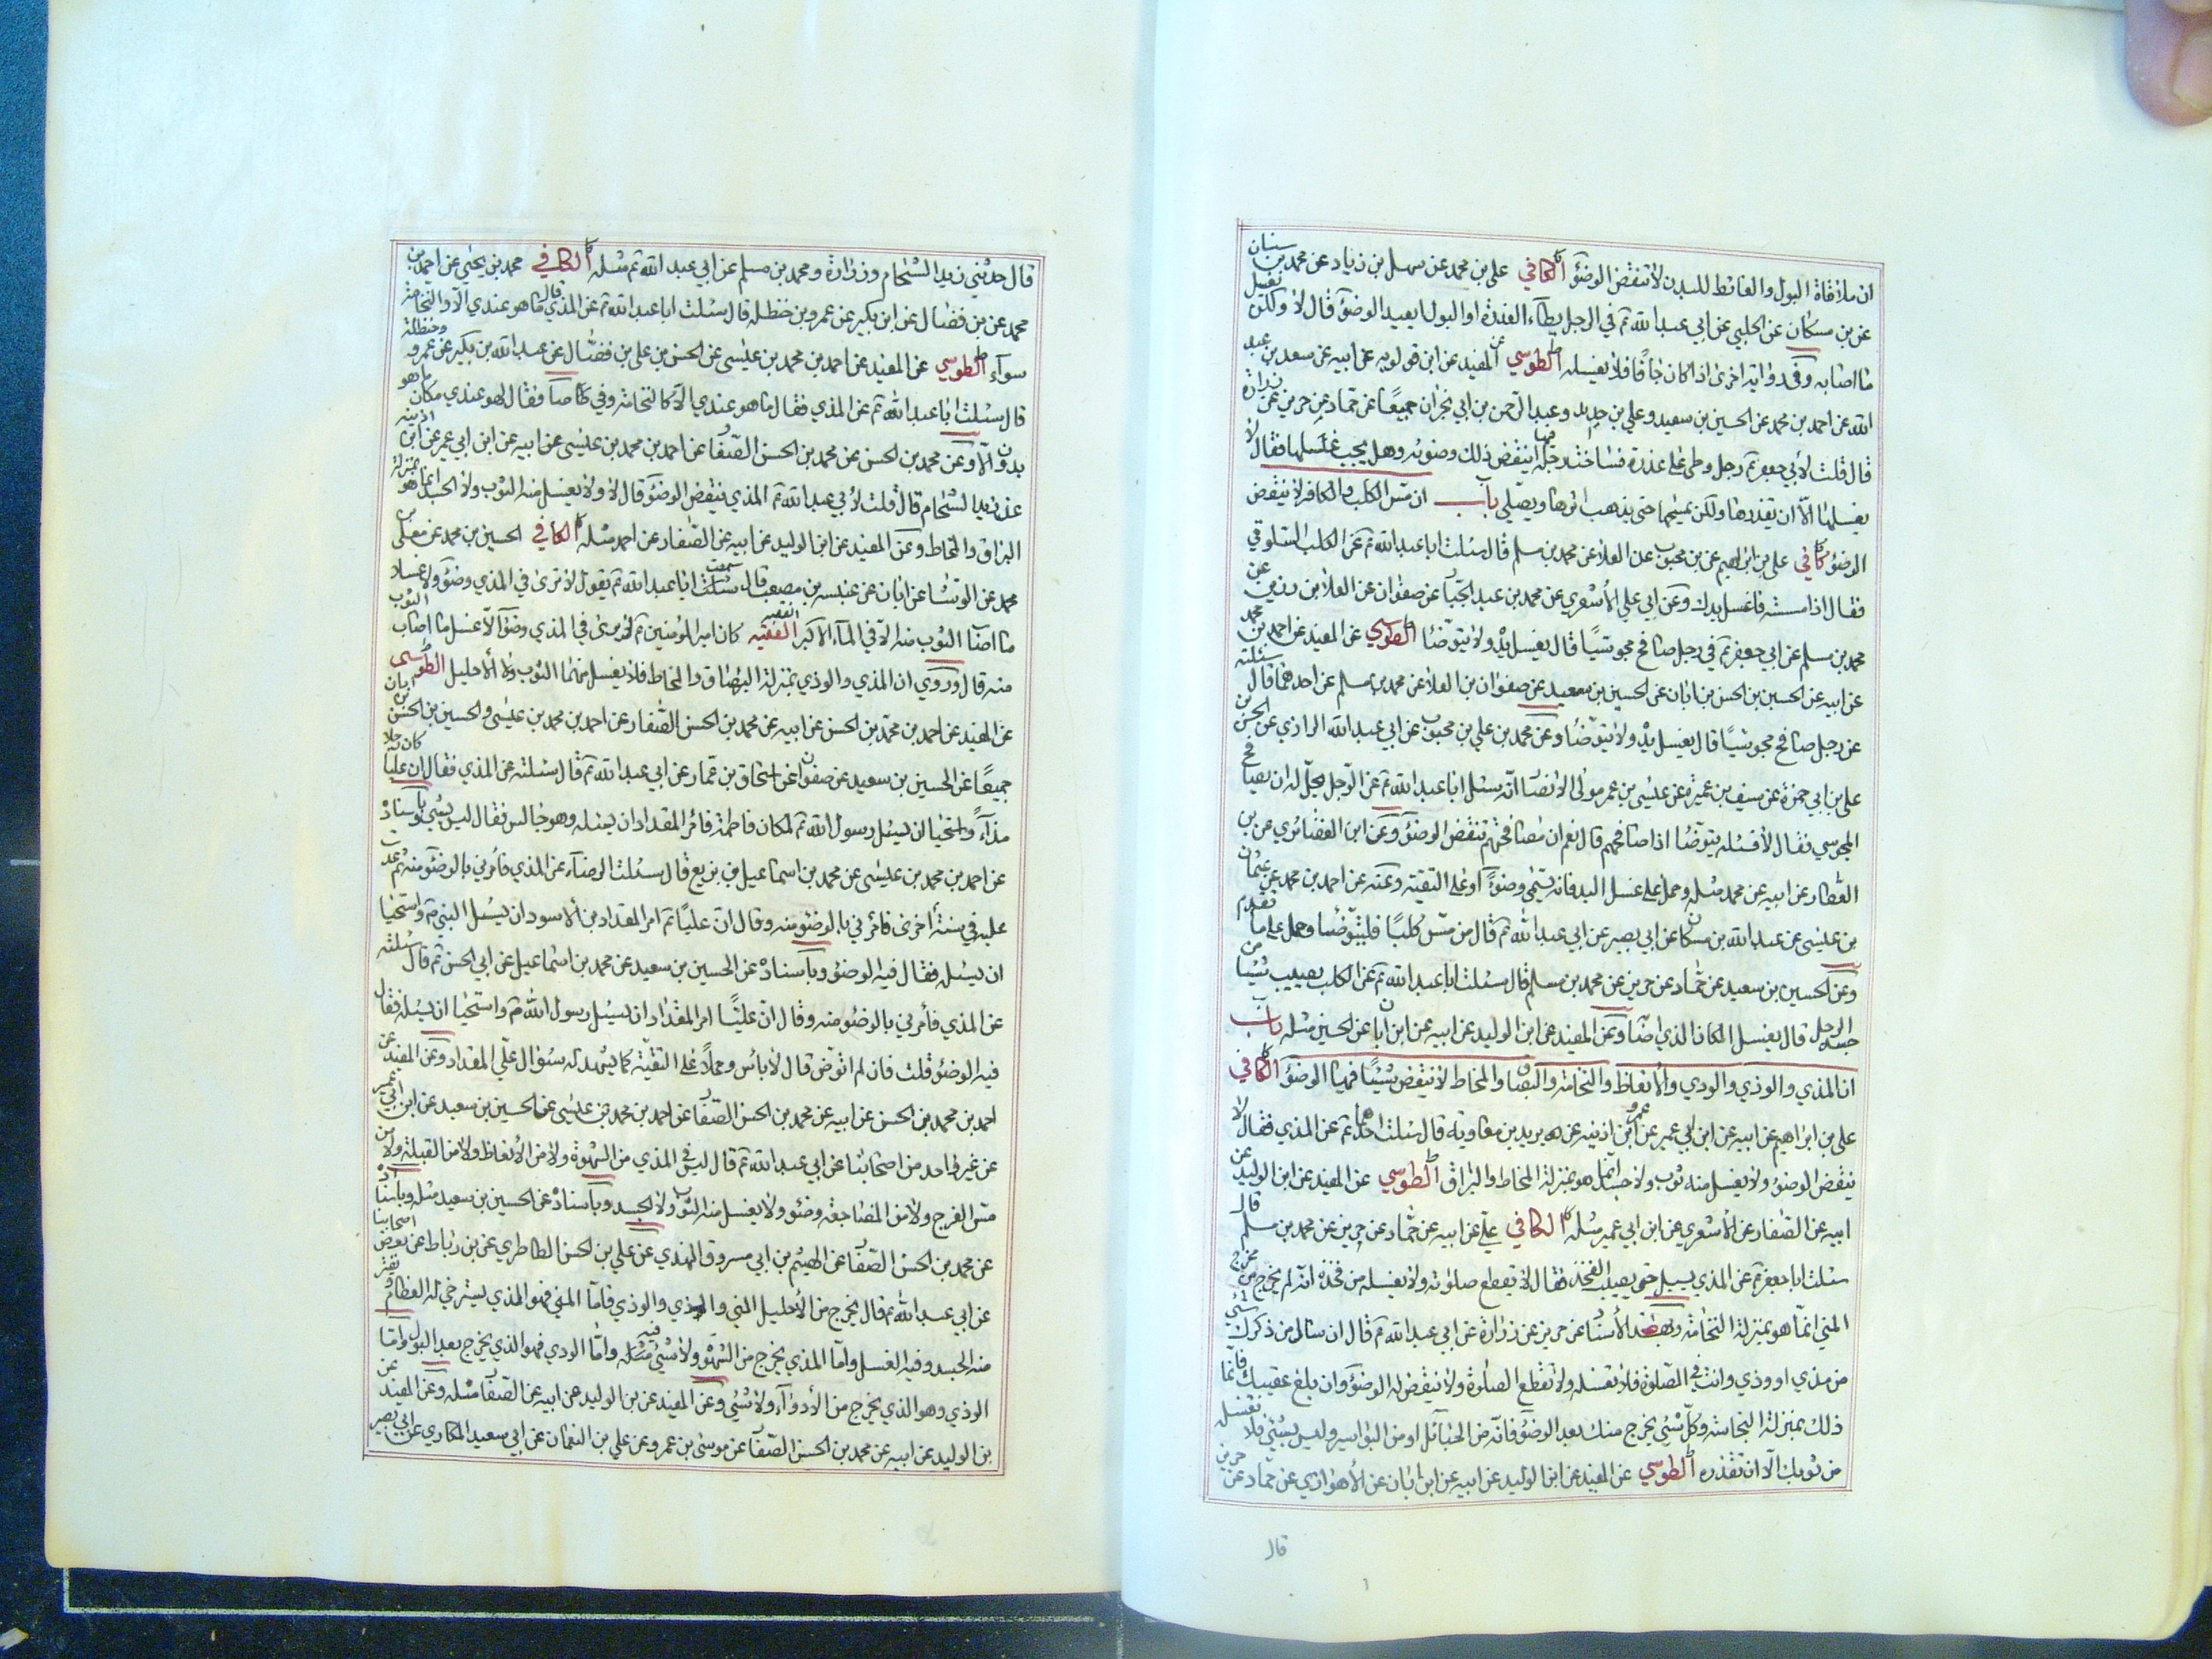 ان ملاقاة البول والغائط للبدن لا تنقض الوضوء الكافي علي بن محمد عن سهل بن زياد عن محمد بن سنان
عن بن مسكان عن الحلبي عن ابي عبد الله ع في الرجل يطاء العذرة او البول ايعيد الوضوء قال لا ولكن يغسل
ما اصابه وفي رواية اخرى اذا كان جافا فلا يغسله الطوسي عن المفيد عن ابن قولويه عن ابيه عن سعد بن عبد
الله عن احمد بن محمد عن الحسين بن سعيد وعلي بن حديد وعبد الرحمن بن ابي نجران جميعا عن حماد عن حريز عن زرارة
قال قلت لابي جعفر ع رجل وطى على عذرة فساخت رجله فيها اينقض ذلك وضوئه وهل يجب غسلها فقال لا
يغسلها الا ان يقذرها ولكن يمسحها حتى يذهب اثرها ويصلي باب ان مس الكلب والكافر لا ينقض
الوضوء كافي علي بن ابراهيم عن بن محبوب عن العلا عن محمد بن مسلم قال سئلت ابا عبد الله ع عن الكلب السلوقي
فقال اذا مسسته فاغسل يدك وعن ابي علي الأشعري عن محمد بن عبد الجبار عن صفوان عن العلا بن رزين عن
محمد بن مسلم عن ابي جعفر ع في رجل صافح مجوسيا قال يغسل يده ولا يتوضئا الطوسي عن المفيد عن احمد بن محمد
عن ابيه عن الحسين بن الحسن بن ابان عن الحسين بن سعيد عن صفوان بن العلا عن محمد بن مسلم عن احدهما قال سئلته
عن رجل صافح مجوسيا قال يغسل يده ولا يتوضا وعن محمد بن علي بن محبوب عن ابي عبد الله الرازي عن الحسن بن
علي بن ابي حمزة عن سيف بن عميرة عن عيسى بن عمر مولى الانصار انه سئل ابا عبد الله ع عن الرجل يحل له ان يصافح
المجوسي فقال لا فسئله يتوضا اذا صافحهم قال نعم ان مصافحتهم تنقض الوضوء وعن ابن الغضائري عن بن
العطار عن ابيه عن محمد مثله وحمل على غسل اليد فانه يسمى وضوءا او على التقية وعنه عن احمد بن محمد عن عثمان
بن عيسى عن عبد الله بن مسكان عن ابي بصير عن ابي عبد الله ع قال من مس كلبا فليتوضئا وحمل على ما تقدم
وعن الحسين بن سعيد عن حماد عن حريز عن محمد بن مسلم قال سئلت ابا عبد الله ع عن الكلب يصيب شيئا من
جسد الرجل قال يغسل المكان الذي اصابه وعن المفيد عن ابن الوليد عن ابيه عن ابن ابان عن الحسين مثله باب
ان المذي والوذي والودي والأنعاظ والنخامة والبصاق والمخاط لا ينقض شيئا فيها الوضوء الكافي
علي بن ابراهيم عن ابيه عن ابن ابي عمير عن عمر بن اذينه عن بريد بن معاوية قال سئلت احدهما ع عن المذي فقال لا
ينقض الوضوء ولا يغسل منه ثوب ولا جسد انما هو بمنزلة المخاط والبزاق الطوسي عن المفيد عن ابن الوليد عن
ابيه عن الصفار عن الأشعري عن ابن ابي عمير مثله الكافي علي عن ابيه عن حماد عن حريز عن محمد بن مسلم قال
سئلت ابا جعفر ع عن المذي يسيل حتى يصيب الفخذ فقال لا يقطع صلوته ولا يغسله من فخذه انه لم يخرج من مخرج
المني انما هو بمنزلة النخامة وبهذا الأسناد عن حريز عن زرارة عن ابي عبد الله ع قال ان سال من ذكرك شيء
من مذي او وذي وانت في الصلوة فلا تغسله ولا تقطع الصلوة ولا ينقض له الوضوء وان بلغ عقيبك فانما
ذلك بمنزلة النخامة وكل شيء يخرج منك بعد الوضوء فانه من الحبائل او من البواسير وليس بشيء فلا تغسله
من ثوبك الا ان تقذره الطوسي عن المفيد عن ابن الوليد عن ابيه عن ابن ابان عن الأهوازي عن حماد عن حريز
قال
قال حدثني زيد الشحام وزرارة ومحمد بن مسلم عن ابي عبد الله ع مثله الكافي محمد بن يحيى عن احمد بن
محمد عن بن فضال عن ابن بكير عن عمر بن حنظله قال سئلت ابا عبد الله ع عن المذي قال ما هو عندي الا والنخامة
سواء الطوسي عن المفيد عن احمد بن محمد بن عيسى عن الحسن بن علي بن فضال عن عبد الله بن بكير عن عمرو حنظلة
قال سئلت ابا عبد الله ع عن المذي فقال ما هو عندي الا كالنخامة وفي كا صا فقال لهو عندي مكان ما هو
بدون الا وعن محمد بن الحسن عن محمد بن الحسن الصفار عن احمد بن محمد بن عيسى عن ابيه عن ابن ابي عمير عن ابن اذينه
عن زيد الشحام قال قلت لأبي عبد الله ع المذي ينقض الوضوء قال لا ولا يغسل منه الثوب ولا الجسد انما هو بمنزلة
البزاق والمخاط وعن المفيد عن ابن الوليد عن ابيه عن الصفار عن احمد مثله الكافي الحسين بن محمد عن معلى بن
محمد عن الوشا عن ابان عن عنبسه بن مصعب قال سمعت ابا عبد الله ع يقول لا نرى في المذي وضوء ولا غسلا
ما اصاب الثوب منه الا في الماء الاكبر الفقيه كان امير المؤمنين ع لا يرى في المذي وضوءا لا غسل ما اصاب الثوب
منه قال وروي ان المذي والوذي بمنزلة البصاق والمخاط فلا يغسل منهما الثوب ولا الأحليل الطوسي
عن المفيد عن احمد بن محمد بن الحسن عن ابيه عن محمد بن الحسن الصفار عن احمد بن محمد بن عيسى والحسين بن الحسن بن ابان
جميعا عن الحسين بن سعيد عن صفوان عن اسحاق بن عمار عن ابي عبد الله ع قال سئلته عن المذي فقال ان عليا كان رجلا
مذاء واستحيا ان يسئل رسول الله ع لمكان فاطمة فامر المقداد ان يسئله وهو جالس فقال ليس بشيء وباسناده
عن احمد بن محمد بن عيسى عن محمد بن اسماعيل بن بزيع قال سئلت الرضاء عن المذي فأمرني بالوضوء منه ثم عدت
عليه في سنة أخرى فامرني بالوضوء منه وقال ان عليا ع امر المقداد بن الأسود ان يسئل النبي ص واستحيا
ان يسئله فقال فيه الوضوء وبأسناده عن الحسين بن سعيد عن محمد بن اسماعيل عن ابي الحسن ع قال سئلته
عن المذي فأمرني بالوضوء منه وقال ان عليا امر المقداد ان يسئل رسول الله ص واستحيا ان يسئله فقال
فيه الوضوء قلت فان لم اتوض قال لا بأس وحملا على التقية كما يشهد له سئوال علي المقداد وعن المفيد عن
احمد بن محمد بن الحسن عن ابيه عن محمد بن الحسن الصفار عن احمد بن محمد بن عيسى عن الحسين بن سعيد عن ابن ابي عمير
عن غير واحد من اصحابنا عن ابي عبد الله ع قال ليس في المذي من الشهوة ولا من الأنعاظ ولا من القبلة ولا من
مس الفرج ولا من المضاجعه وضوء ولا يغسل منه الثوب ولا الجسد وبأسناده عن الحسين بن سعيد مثله وباسناده
عن محمد بن الحسن الصفار عن الهيثم بن ابي مسروق النهدي عن علي بن الحسن الطاطري عن بن رباط عن بعض اصحابنا
عن ابي عبد الله ع قال يخرج من الأحليل المني والمذي والوذي فاما المني فهو المذي يسترخي له العظام ويفتر
منه الجسد وفيه الغسل واما المذي يخرج من الشهوة ولا شيء فيه واما الودي فهو الذي يخرج بعد البول واما
الوذي وهو الذي يخرج من الأدواء ولا شيء وعن المفيد عن بن الوليد عن ابيه عن الصفار مثله وعن المفيد عن
بن الوليد عن ابيه عن محمد بن الحسن الصفار عن موسى بن عمرو عن علي بن النعمان عن ابي سعيد المكاري عن ابي بصير